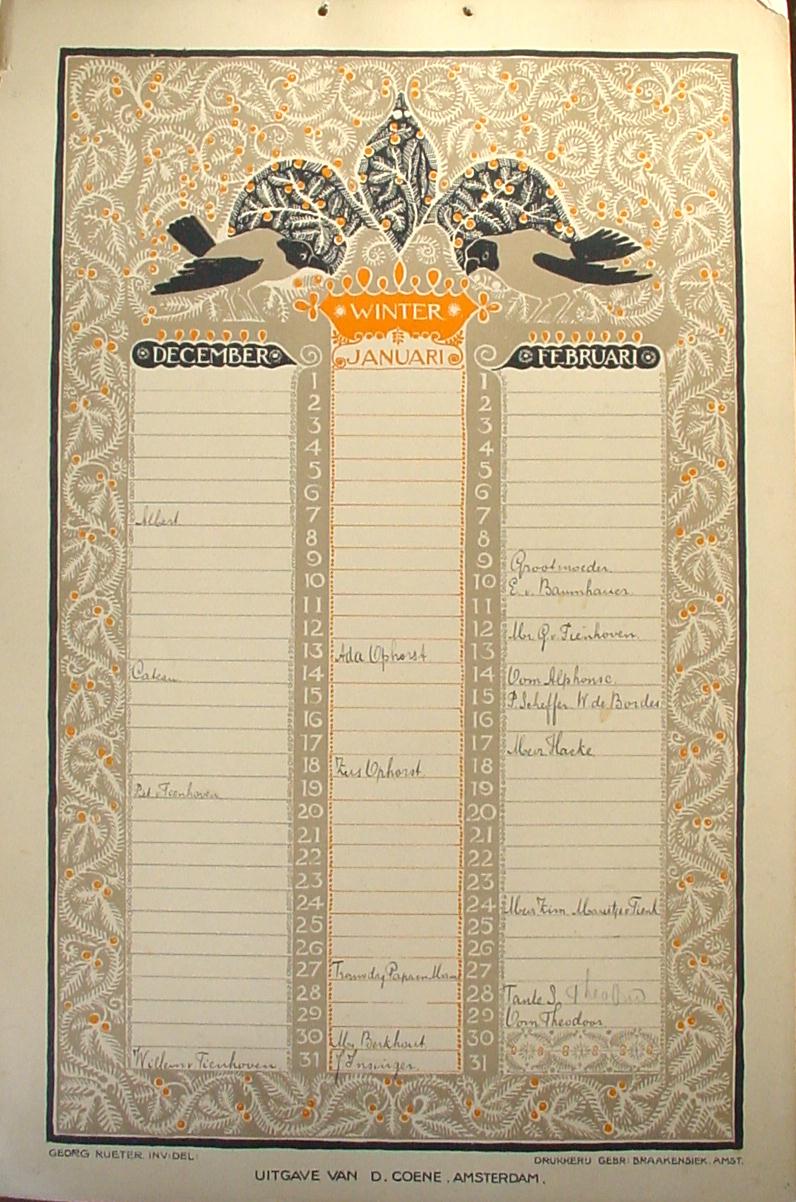 WINTER
DECEMBER JANUARI FEBRUARI
1 1
2 2
3 3
4 4
5 5
6 6
Albert 7 7
8 8
9 9 Grootmoeder.
10 10 E. v. Baumhauer.
11 11
12 12 Mr G. v. Tienhoven.
13 Ada Ophorst 13
Cateau 14 14 Oom Alphonse.
15 15 P. Scheffer W. de Bordes
16 16
17 17 Mevr Hacke.
18 Zus Ophorst. 18
Bet. v Tienhoven 19 19
20 20
21 21
22 22
23 23
24 24 Mevr Zim. v Tienh
25 25
26 26
27 Trouwdag Papa en Mama 27
28 28 Tante S. Theodoor
29 29 Oom Theodoor
30 Berkhout 30
Willem v Tienhoven 31 J Insinger. 31
GEORG RUETER. INV: DEL: DRUKKERIJ GEBR: BRAAKENSIEK. AMST.
UITGAVE VAN D. COENE. AMSTERDAM.